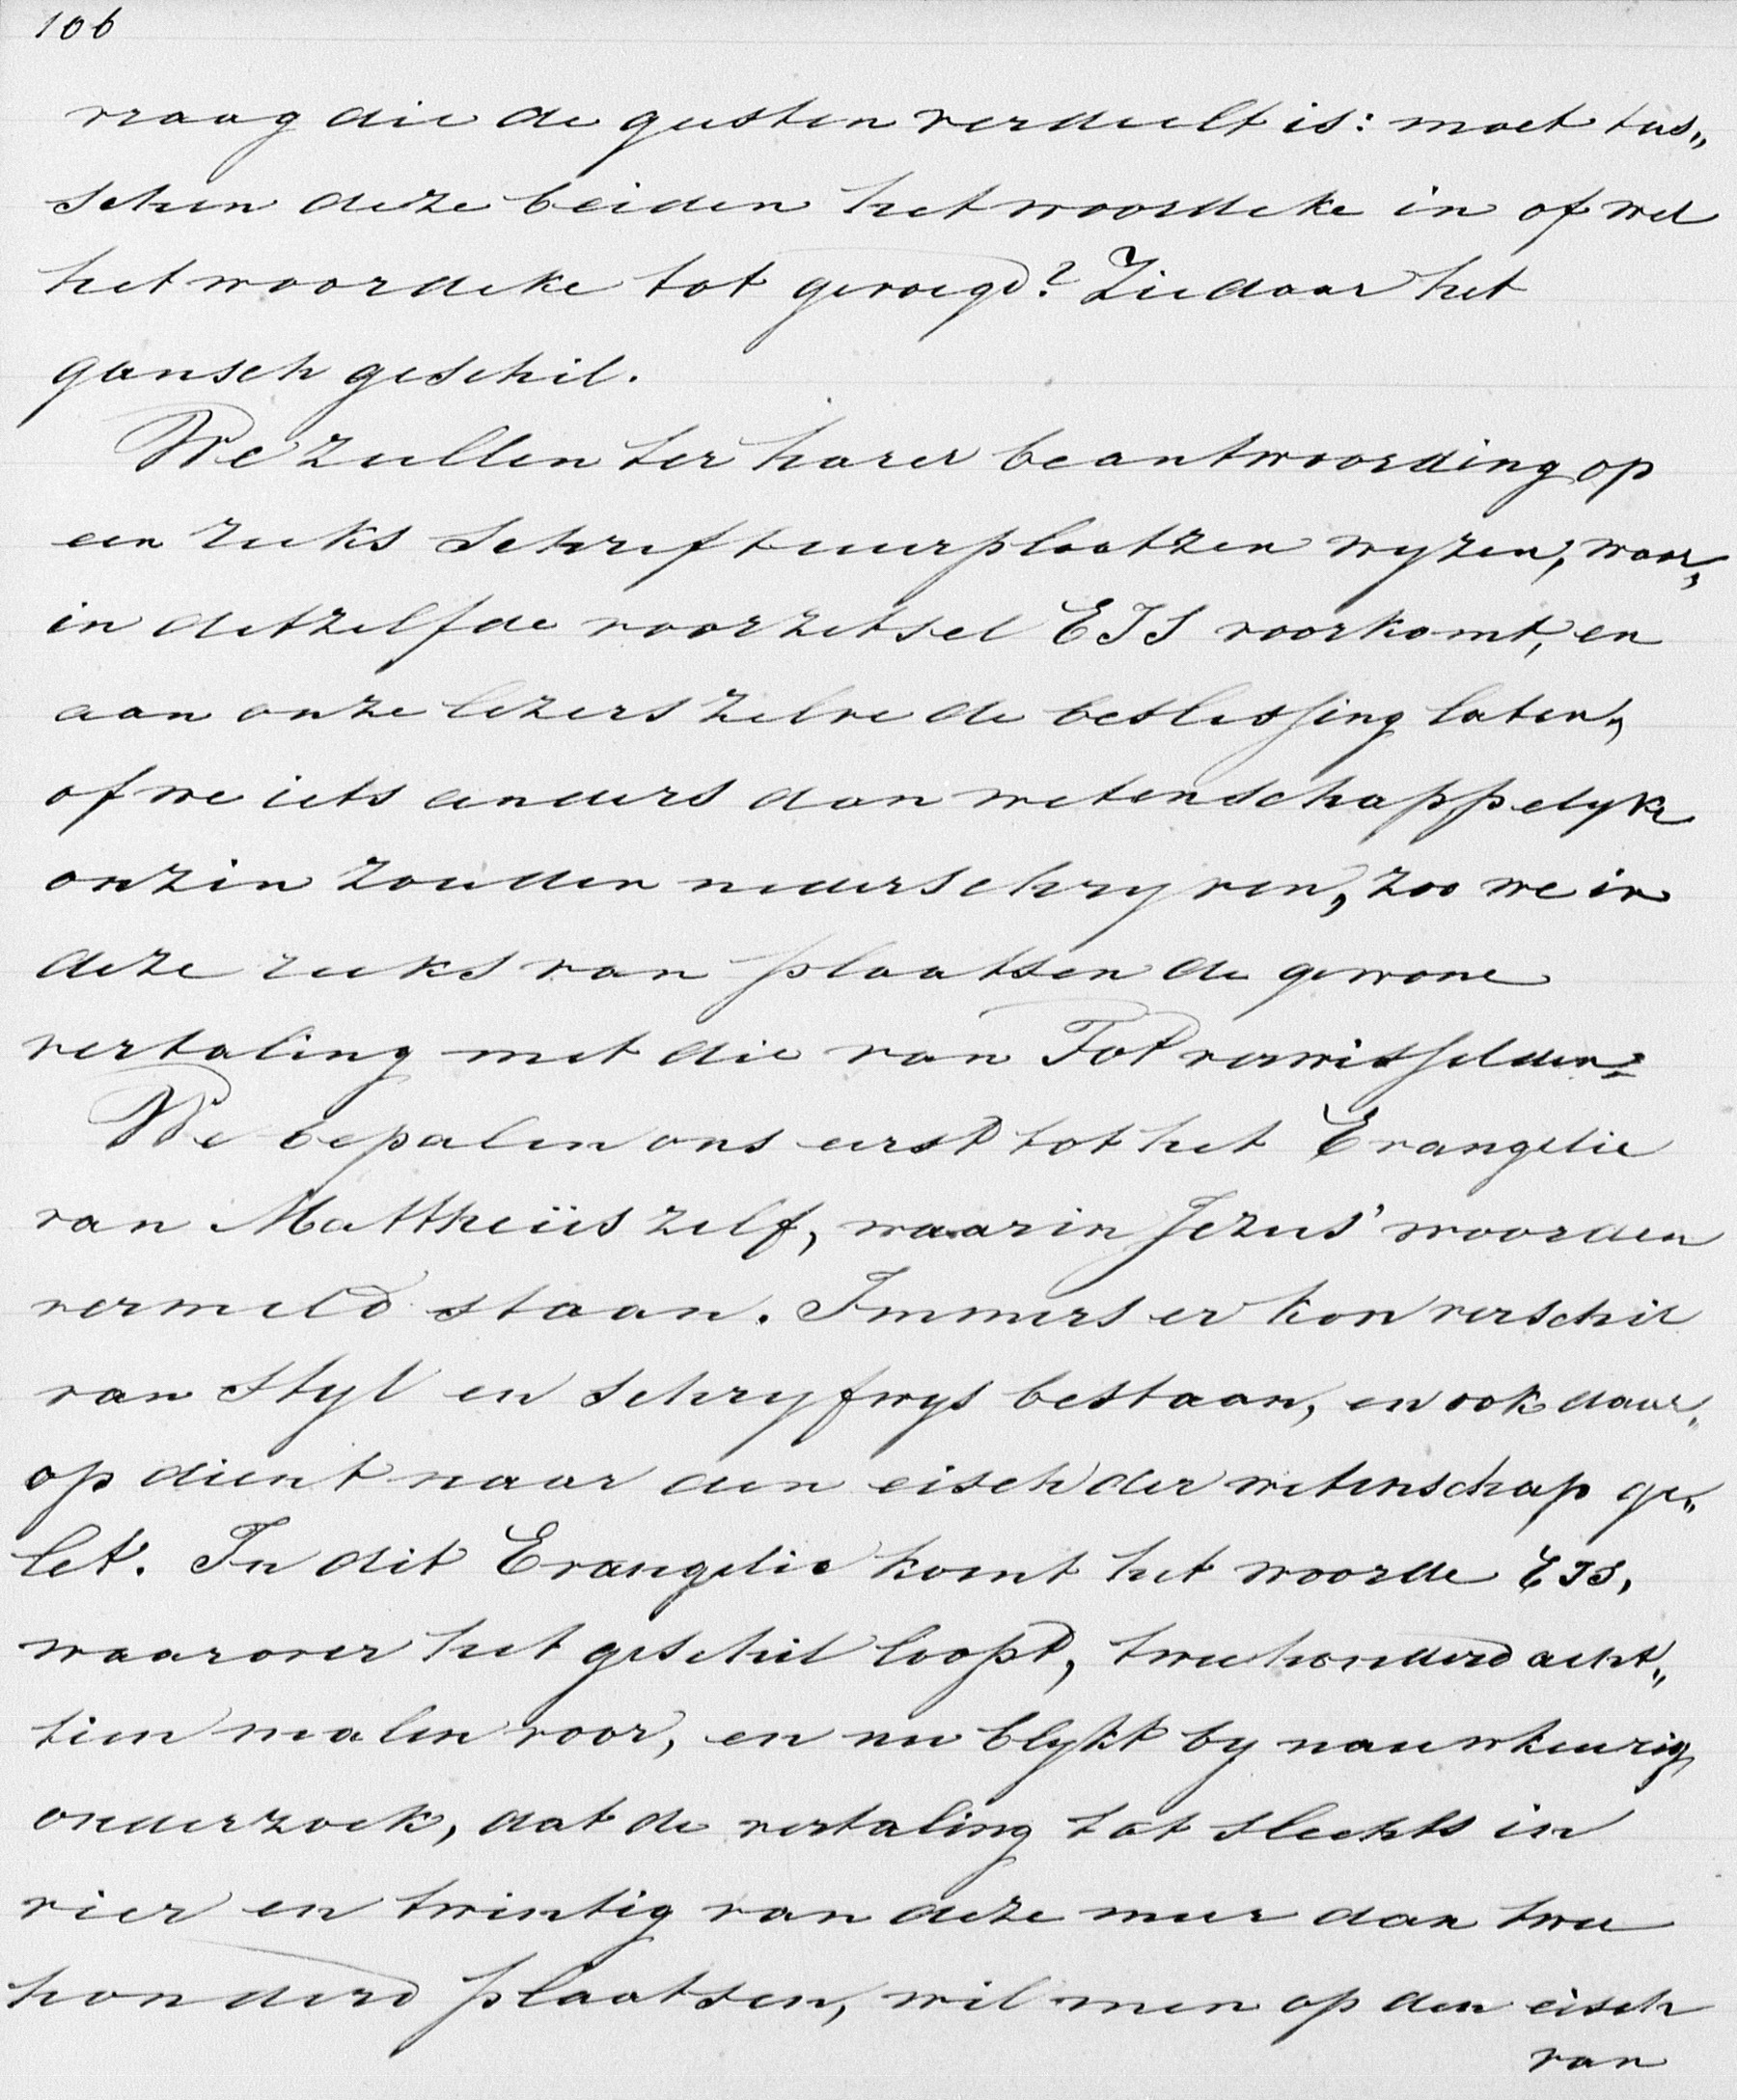 106
vraag die de geesten verdeelt is: moet tus„
schen deze beiden het woordeke in of wel
het woordeke tot gevoegd? Ziedaar het
gansch geschil.
We zullen ter harer beantwoording op
een reeks Schriftuurplaatzen wyzen, waar„
in ditzelfde voorzetsel EIS voorkomt, en
aan onze lezers zelve de beslissing laten,
of we iets anders dan wetenschappelyke
onzin zouden nederschryven, zoo we in
deze reeks van plaatsen de gewone
vertaling met die van Tot verwisselden.
We bepalen ons eerst tot het Evangelie
van Mattheüs zelf, waarin Jezus' woorden
vermeld staan. Immers er kon verschil
van styl en schryfwys bestaan, en ook daar„
op dient naar den eisch der wetenschap ge„
let. In dit Evangelie komt het woorde EIS,
waarover het geschil loopt, twee honderd acht„
tien malen voor, en nu blykt by nauwkeurig
onderzoek, dat de vertaling tot slechts in
vier en twintig van deze meer dan twee
honderd plaatsen, wil men op den eisch
van